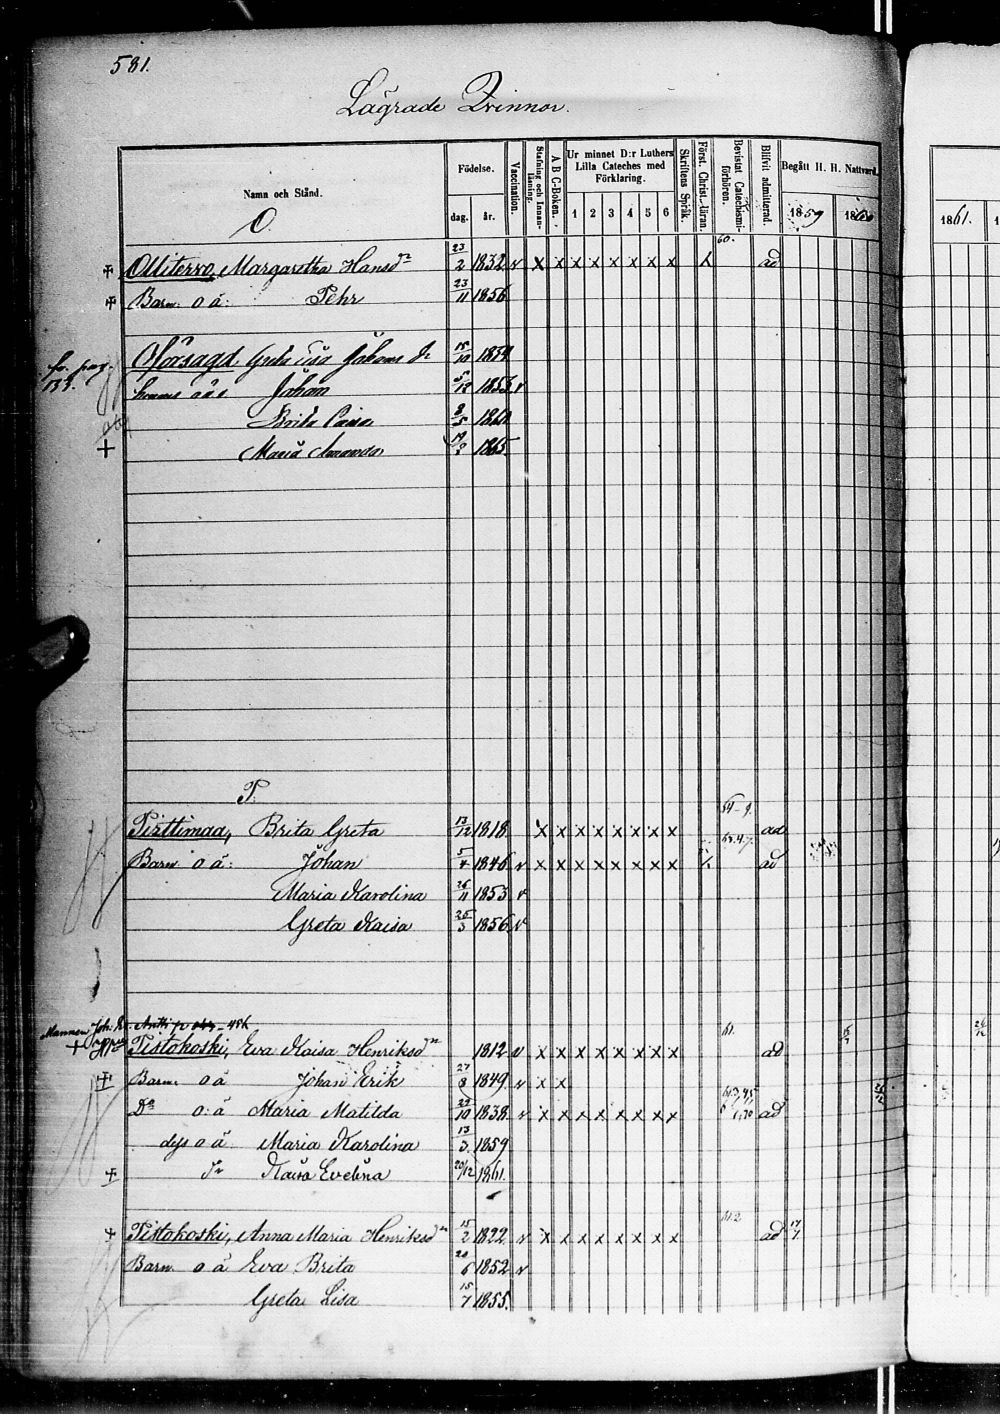 581.
Lägrade Qvinnor.
Namn och Stånd.
Födelse.
dag. år.
Vaccination.
Stafning och Innanläsning.
A B C-Boken.
Ur minnet D:r Luthers Lilla Cateches med Förklaring.
1 2 3 4 5 6
Skriftens Språk.
Först. Christ. läran.
Bevistat Catechismiförhören.
Blifvit admitterad.
Begått H. H. Nattvard.
1859 1860
1861.
O.
60.
+ Ollitervo, Margaretha Hansdr 23/2 1832 v x x x x x x x x ad
+ Barn o ä: Pehr 23/11 1856
Oförsagd Greta Johans 15/10 1854
fr. pag.
Johan 5/12 1853 v
Brita Caisa 2/5 1860
+ Maria Amanda 19/2 1865.
P.
54-9.
Pirttimaa, Brita Greta 13/12 1818. x x x x x x x x ad
Barn o ä: Johan 5/4 1846 v x x x x x x x x ad
Maria Karolina 26/11 1853 v
Greta Kaisa 25/3 1856 v
Mannen Joh. Er. Antti
61.
+ Pistokoski, Eva Kaisa Henriksdn 1812 v x x x x x x x x ad
+ Barn: o ä Johan Erik 27/8 1849. v x x
Do o: ä Maria Matilda 29/10 1838. v x x x x x x x x ad
dess o ä Maria Karolina 13/3 1859
+ Kaisa Evelina 20/12 1861.
61.2
+ Pistokoski, Anna Maria Henriksdn 15/2 1822 v x x x x x x x x ad 17/7
Barn o ä Eva Brita 20/6 1852 v
Greta Lisa 15/7 1855.